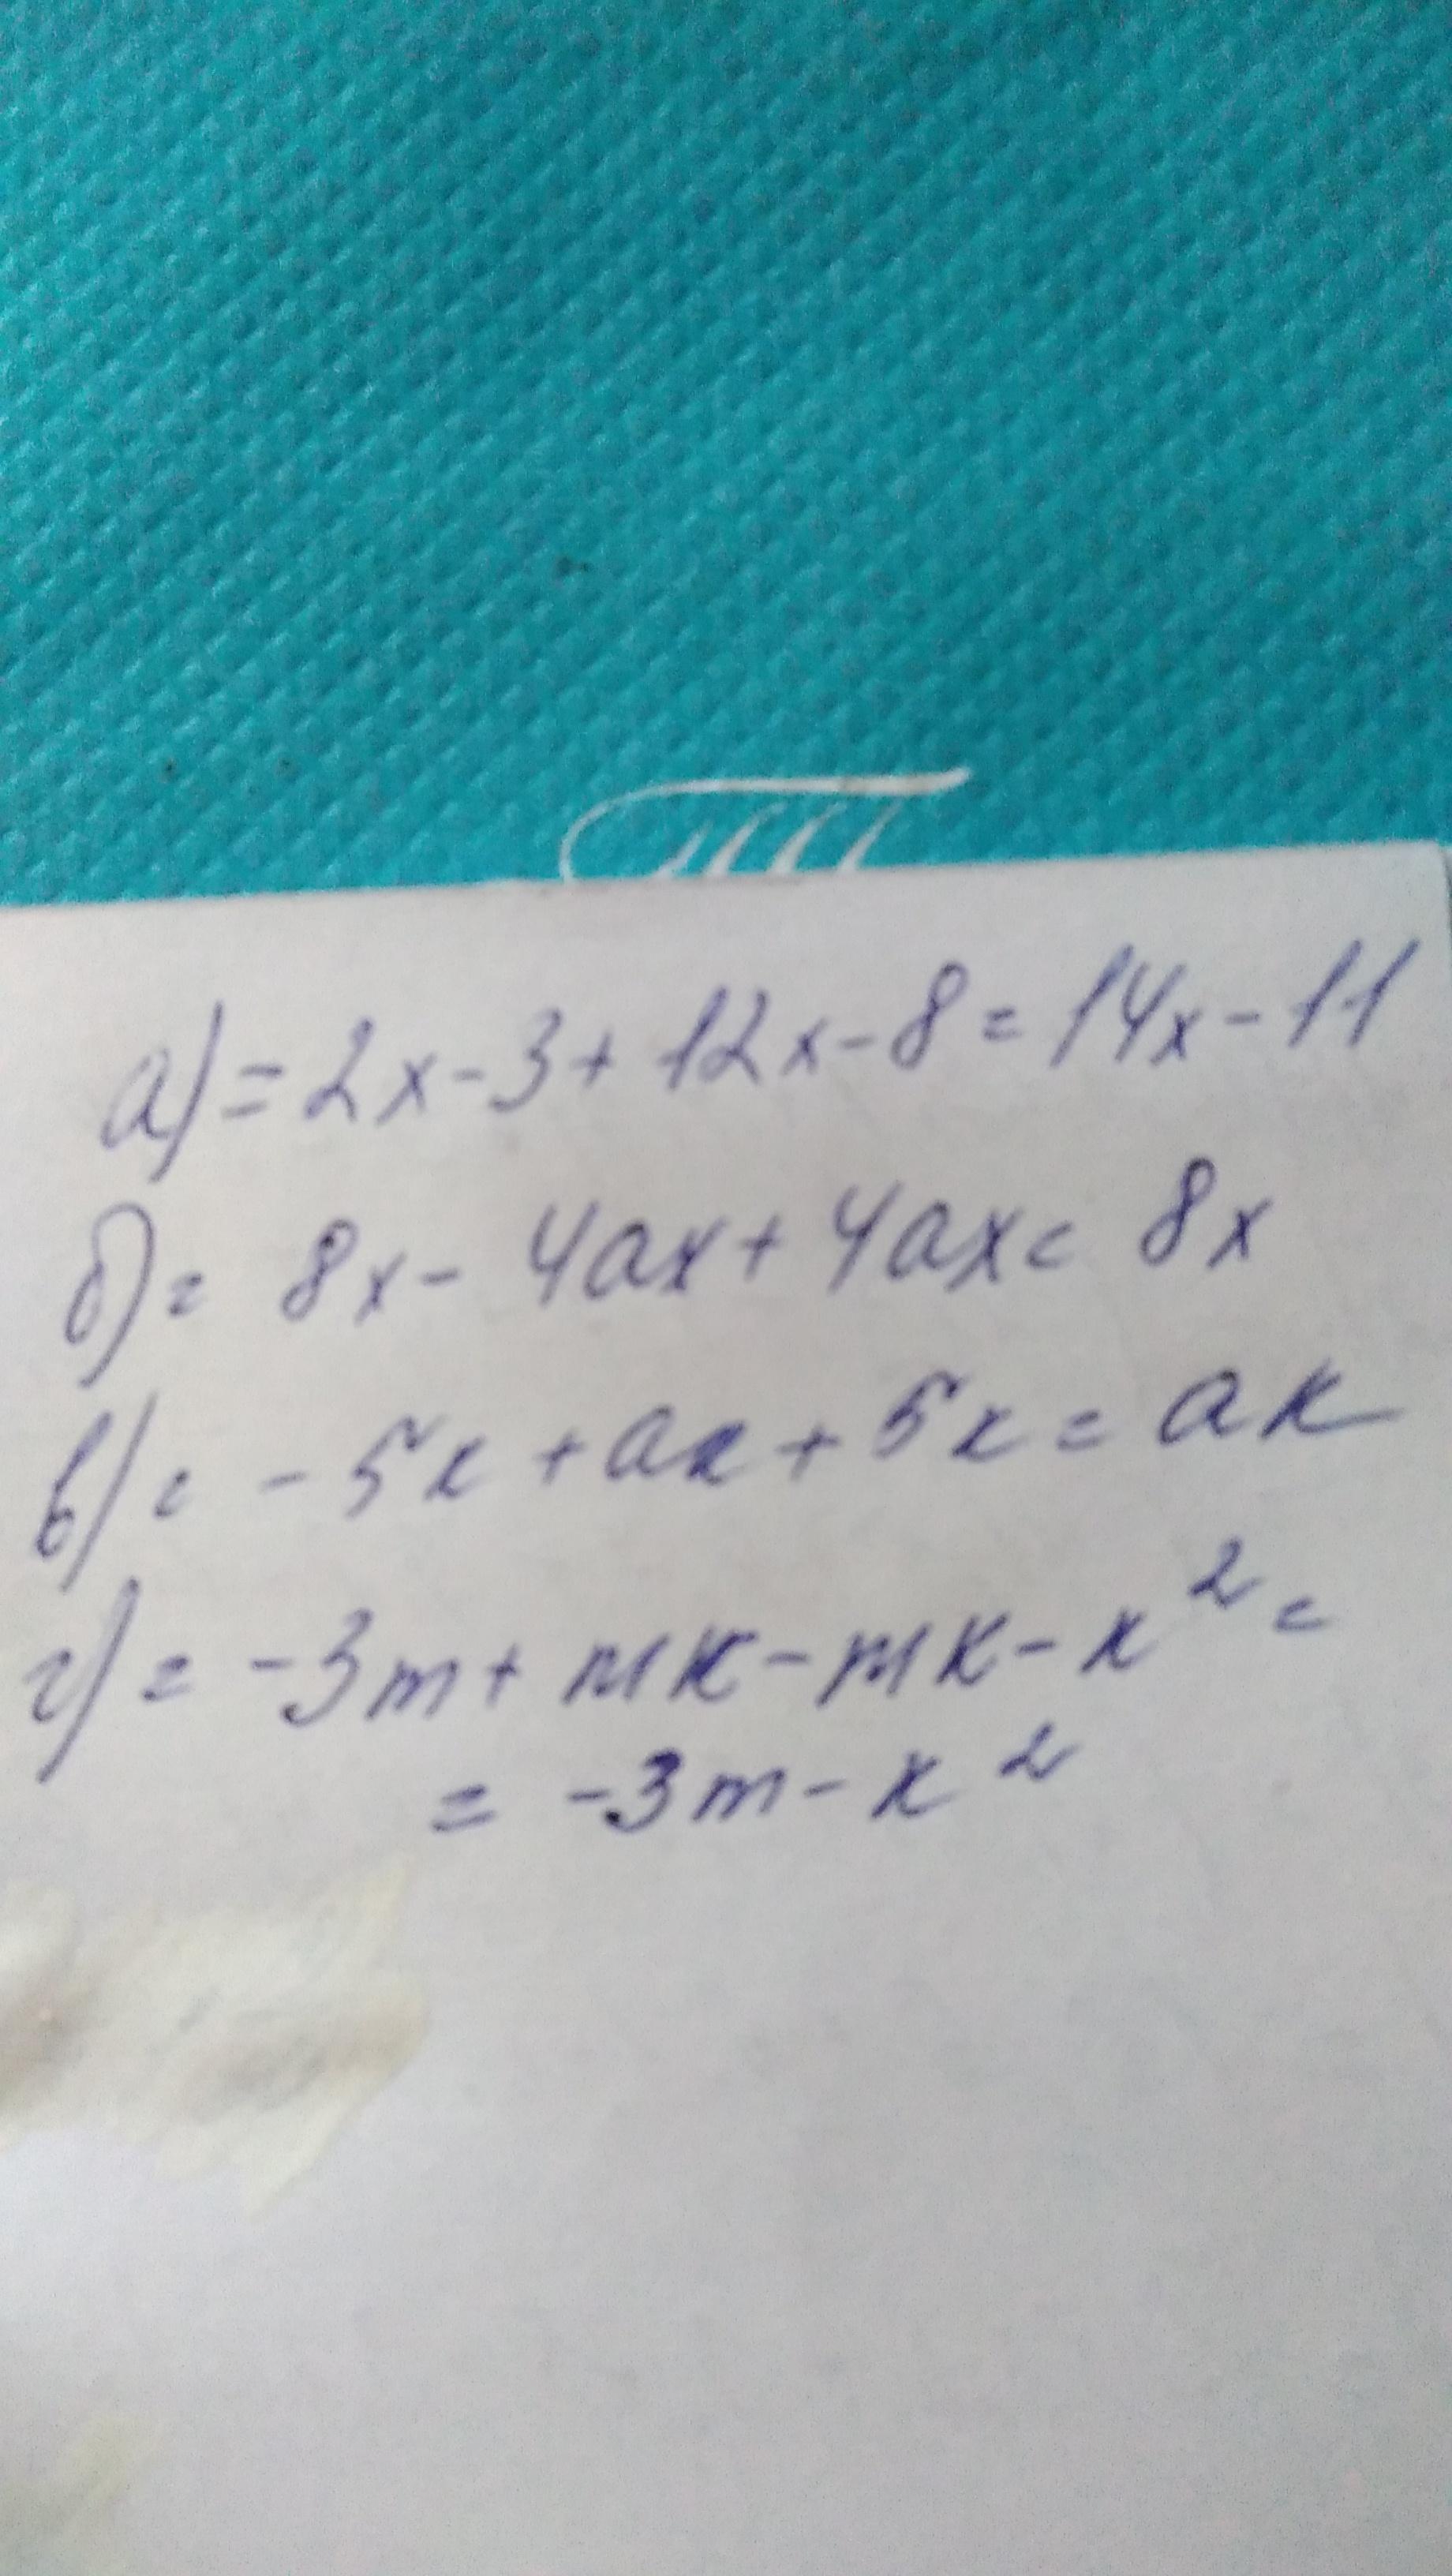 а) = 2x - 3 + 12x - 8 = 14x - 11
б) = 8x - 4ax + 4ax = 8x
в) = - 5x + ax + 5x = ax
г) = -3m + mк - mк - к² =
= -3m - к²